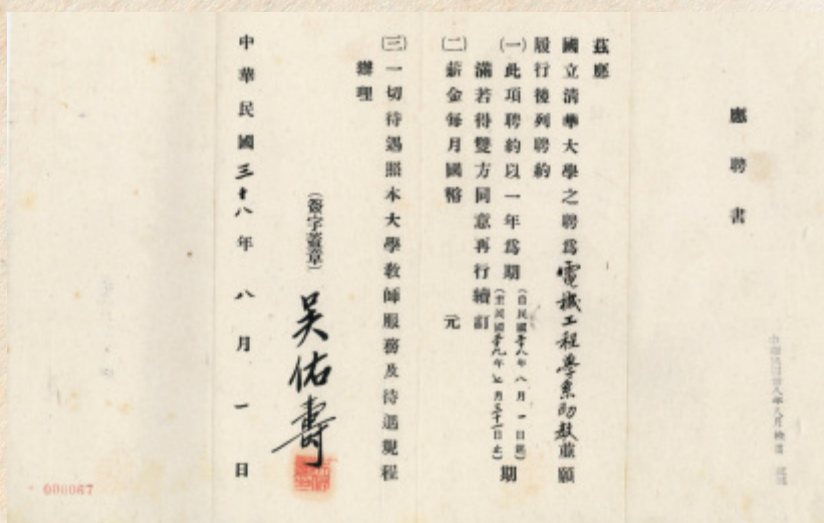 應聘書
茲應
國立清華大學之聘為電機工程學系助教並願
履行後列聘約
(一)此項聘約以一年為期(自民國卅八年八月一日起)(至民國卅九年七月三十一日止)期
滿若得雙方同意再行續訂
(二)薪金每月國幣 元
(三)一切待遇照本大學教師服務及待遇規程
辦理
(簽字蓋章) 吳佑壽
中華民國三十八年八月一日
000067